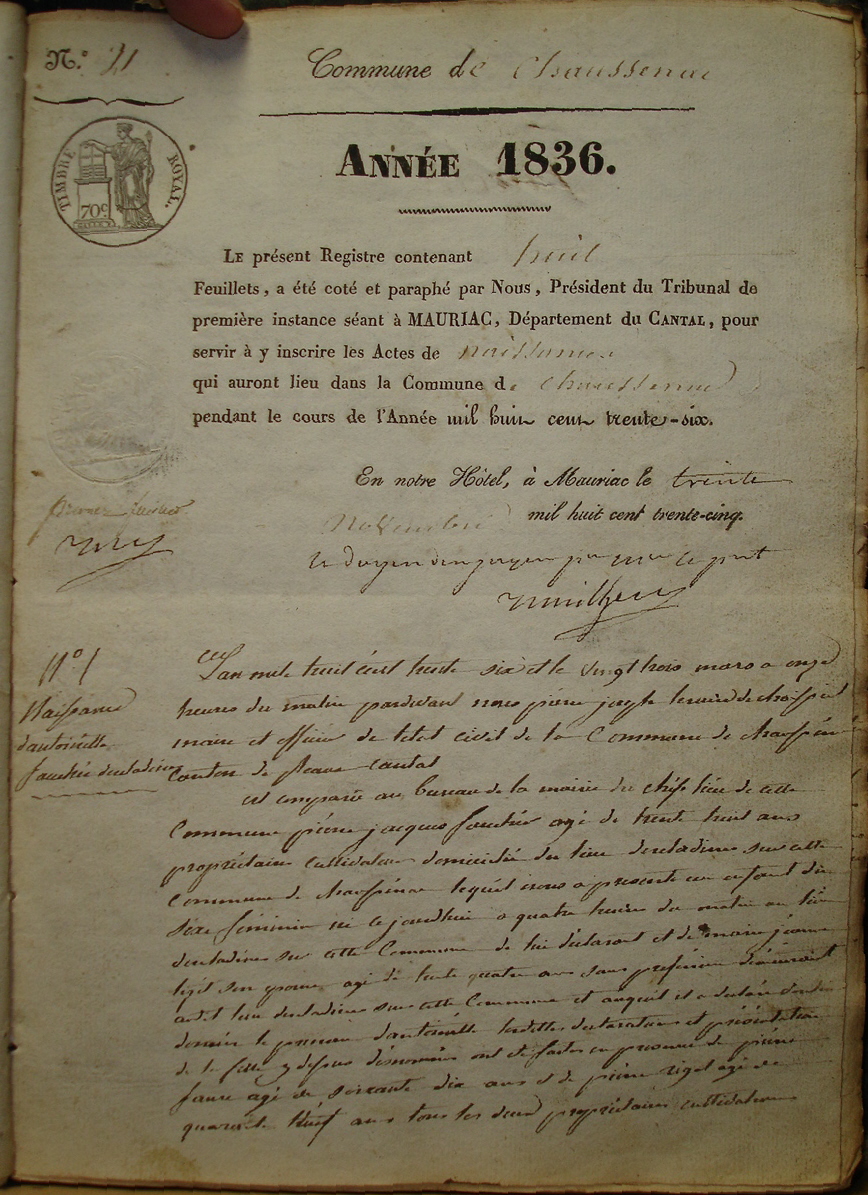 N.º 21
Commune de Chaussenac
TIMBRE ROYAL.
70c
ANNÉE 1836.
LE présent Registre contenant huit
Feuillets, a été coté et paraphé par Nous, Président du Tribunal de
première instance séant à MAURIAC, Département du CANTAL, pour
servir à y inscrire les Actes de naissances
qui auront lieu dans la Commune de Chaussenac
pendant le cours de l'Année mil huit cent trente-six.
En notre Hôtel, à Mauriac le trente
Novembre mil huit cent trente-cinq.
premier feuillet
Nº 1
Naissance
d'antoinette
L'an mil huit cent trente six et le vingt trois mars a onze
heures du matin pardevant nous pierre
maire et officier de l'etat civil de la Commune de
Canton de pleaux cantal
est comparu au bureau de la mairie du chef lieu de cette
Commune pierre jacques agé de trente huit ans
propriétaire cultivateur domicilié du lieu sur cette
Commune de lequel nous a presenté un enfant du
sexe féminin né ce jourdhui a quatre heures du matin au lieu
sur cette Commune de lui déclarant et de marie jeanne
son epouse agé de trente quatre ans sans profession demeurant
audit lieu sur cette Commune et auquel il a déclaré vouloir
donner le prenom d'antoinette lesdittes declaration et présentation
de la fille y dessus dénommée ont été faites en presence de pierre
faure agé de soixante dix ans et de pierre rigal agé de
quarante neuf ans tous les deux propriétaires cultivateurs